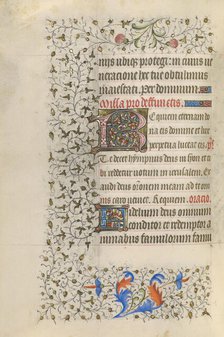 mps ubiq; protegi: in cuius ue
neracione hec tue obtulimus
maiestati. per dominum
Missa pro deffunctis.
Requiem eternam do
na eis domine et hec
perpetua luceat eis. ps
Te decet hympnus deus in syon et ti
bi reddetur uotum in ierusalem. Ex
audi deus orationem meam ad te omnis
caro veniet. Requiem. oratio.
Fidelium deus omnium
conditor et redemptor a
nimabus famulorum famu